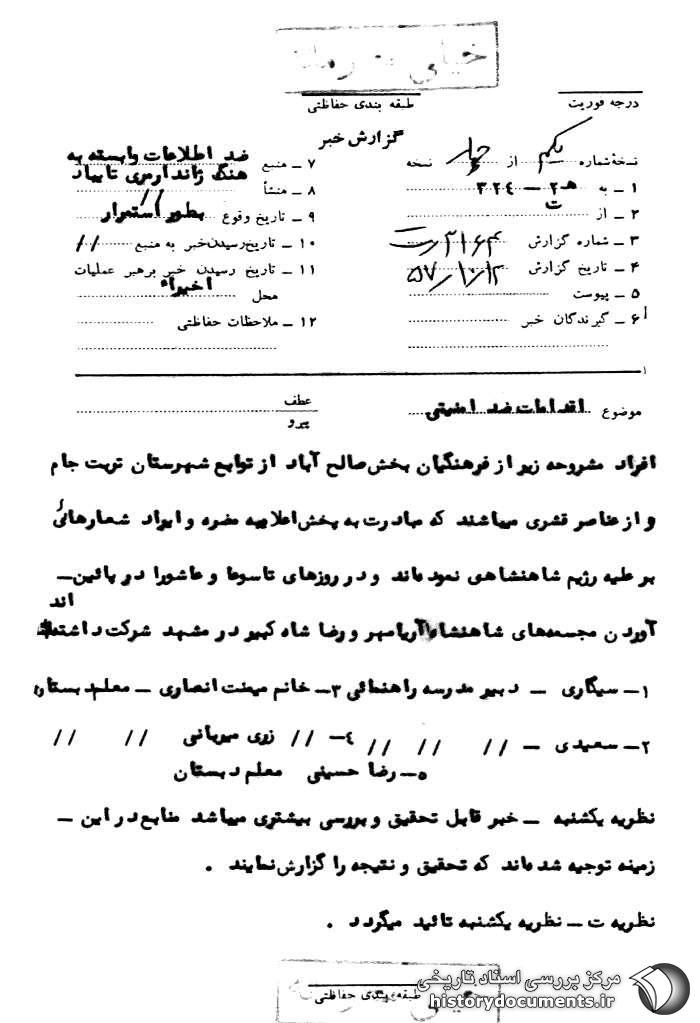 خیلی محرمانه
طبقه بندی حفاظتی
درجه فوریت
گزارش خبر
نسخهٔ شماره یکم از چهار نسخه
۱ ــ به ۳۲٤ ــ ه‍ ۲
۲ ــ از ت
۳ ــ شماره گزارش
۴ ــ تاریخ گزارش ۵۷/۱۰/۱۳
۵ ــ پیوست
۶ ــ گیرندگان خبر
۷ ــ منبع ضد اطلاعات وابسته به
هنگ ژاندارمری تایباد
۸ ــ منشأ //
۹ ــ تاریخ وقوع بطور استمرار
۱۰ ــ تاریخ رسیدن خبر به منبع //
۱۱ ــ تاریخ رسیدن خبر برهبر عملیات
محل اخیراً
۱۲ ــ ملاحظات حفاظتی
موضوع اقدامات ضد امنیتی
عطف
پیرو
افراد مشروحه زیر از فرهنگیان بخش صالح آباد از توابع شهرستان تربت جام
و از عناصر قشری میباشند که مبادرت به پخش اعلامیه مضره و ایراد شعارهائی
بر علیه رژیم شاهنشاهی نموده‌اند و در روزهای تاسوعا و عاشورا در پائین‌ــ
آوردن مجسمه‌های شاهنشاه آریامهر و رضا شاه کبیر در مشهد شرکت داشته اند
۱ــ سیگاری ــ دبیر مدرسه راهنمائی ۳ــ خانم میمنت انصاری ــ معلم دبستان
۲ــ سعیدی ــ // // // ٤ــ // زری میربانی // //
۵ــ رضا حسینی معلم دبستان
نظریه یکشنبه ــ خبر قابل تحقیق و بررسی بیشتری میباشد منابع در این ــ
زمینه توجیه شده‌اند که تحقیق و نتیجه را گزارش نمایند .
نظریه ت ــ نظریه یکشنبه تائید میگردد .
طبقه بندی حفاظتی
مرکز بررسی اسناد تاریخی
historydocuments.ir